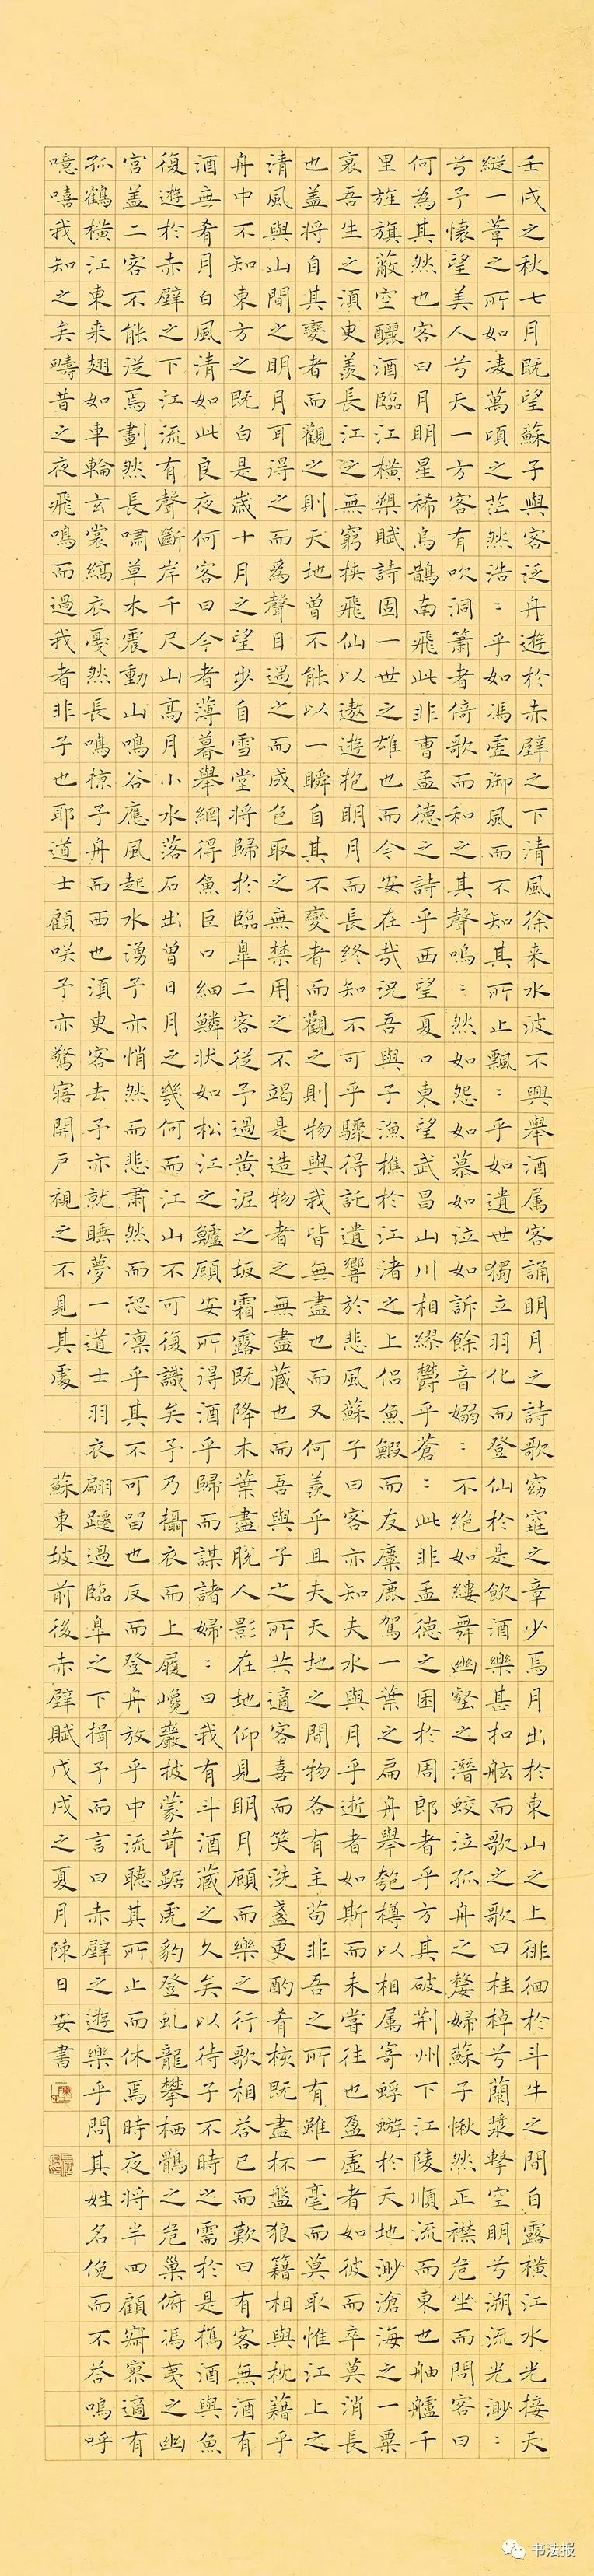 壬戌之秋七月既望蘇子與客泛舟遊於赤壁之下清風徐来水波不興舉酒属客誦明月之詩歌窈窕之章少焉月出於東山之上徘徊於斗牛之間白露橫江水光接天
縱一葦之所如凌萬頃之茫然浩〻乎如馮虛御風而不知其所止飄〻乎如遺世獨立羽化而登仙於是飲酒樂甚扣舷而歌之歌曰桂棹兮蘭漿擊空明兮溯流光渺〻
兮予懷望美人兮天一方客有吹洞簫者倚歌而和之其聲嗚〻然如怨如慕如泣如訴餘音嫋〻不絕如縷舞幽壑之潛蛟泣孤舟之嫠婦蘇子愀然正襟危坐而問客曰
何為其然也客曰月明星稀烏鵲南飛此非曹孟德之詩乎西望夏口東望武昌山川相繆鬱乎蒼〻此非孟德之困於周郎者乎方其破荆州下江陵順流而東也舳艫千
里旌旗蔽空釃酒臨江橫槊賦詩固一世之雄也而今安在哉況吾與子漁樵於江渚之上侶魚鰕而友麋鹿駕一葉之扁舟舉匏樽以相属寄蜉蝣於天地渺滄海之一粟
哀吾生之湏臾羨長江之無窮挟飛仙以遨遊抱明月而長終知不可乎驟得託遺響於悲風蘇子曰客亦知夫水與月乎逝者如斯而未嘗往也盈虛者如彼而卒莫消長
也盖将自其變者而觀之則天地曾不能以一瞬自其不變者而觀之則物與我皆無盡也而又何羨乎且夫天地之間物各有主苟非吾之所有雖一毫而莫取惟江上之
清風與山間之明月耳得之而為聲目遇之而成色取之無禁用之不竭是造物者之無盡藏也而吾與子之所共適客喜而笑洗盞更酌肴核既盡杯盤狼籍相與枕藉乎
舟中不知東方之既白是歲十月之望步自雪堂将歸於臨臯二客從予過黄泥之坂霜露既降木葉盡脫人影在地仰見明月顧而樂之行歌相答已而歎曰有客無酒有
酒無肴月白風清如此良夜何客曰今者薄暮舉網得魚巨口細鱗状如松江之鱸顧安所得酒乎歸而謀諸婦〻曰我有斗酒藏之久矣以待子不時之需於是攜酒與魚
復遊於赤壁之下江流有聲斷岸千尺山高月小水落石出曾日月之幾何而江山不可復識矣予乃攝衣而上履巉巖披蒙茸踞虎豹登虬龍攀栖鶻之危巢俯馮夷之幽
宮盖二客不能從焉劃然長嘯草木震動山鳴谷應風起水湧予亦悄然而悲肅然而恐凜乎其不可留也反而登舟放乎中流聽其所止而休焉時夜将半四顧寂寥適有
孤鶴橫江東来翅如車輪玄裳縞衣戛然長鳴掠予舟而西也湏臾客去予亦就睡夢一道士羽衣翩躚過臨臯之下揖予而言曰赤壁之遊樂乎問其姓名俛而不答嗚呼
噫嘻我知之矣疇昔之夜飛鳴而過我者非子也耶道士顧咲予亦驚寤開戶視之不見其處
蘇東坡前後赤壁賦戊戌之夏月陳日安書
书法报